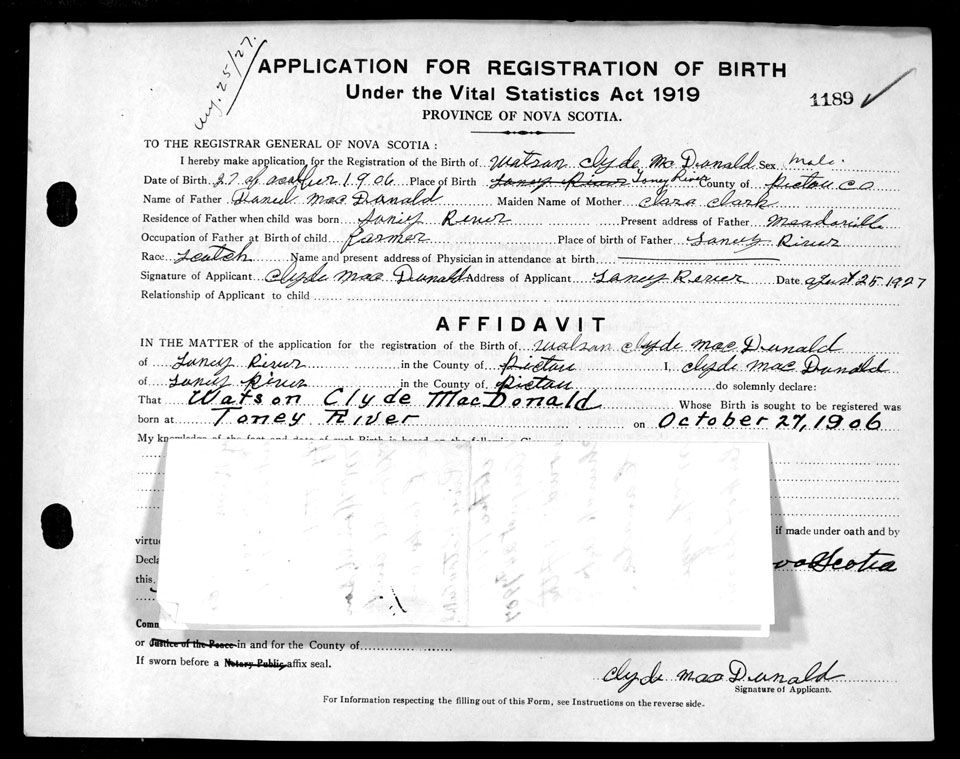 Aug. 25/27.
APPLICATION FOR REGISTRATION OF BIRTH
Under the Vital Statistics Act 1919
1189 ✓
PROVINCE OF NOVA SCOTIA.
TO THE REGISTRAR GENERAL OF NOVA SCOTIA:
I hereby make application for the Registration of the Birth of Watson Clyde McDonald Sex Male.
Date of Birth 27 of 1906 Place of Birth Toney River Toney River County of Pictou Co
Name of Father Daniel MacDonald Maiden Name of Mother Clara Clark
Residence of Father when child was born Toney River Present address of Father Meadowville
Occupation of Father at Birth of child farmer Place of birth of Father Toney River
Race Scotch Name and present address of Physician in attendance at birth
Signature of Applicant Clyde MacDunald Address of Applicant Toney River Date 25 1927
Relationship of Applicant to child
AFFIDAVIT
IN THE MATTER of the application for the registration of the Birth of Watson Clyde Mac Dunald
of Toney River in the County of Pictou I, Clyde Mac Dunald
of Toney River in the County of Pictou do solemnly declare:
That Watson Clyde MacDonald Whose Birth is sought to be registered was
born at Toney River on October 27, 1906
My knowledge of the fact and date of such Birth is based on the following
if made under oath and by
virtue
Decla Scotia
this
Comm
or Justice of the Peace in and for the County of
If sworn before a Notary Public affix seal.
Clyde Mac Dunald
Signature of Applicant.
For Information respecting the filling out of this Form, see Instructions on the reverse side.